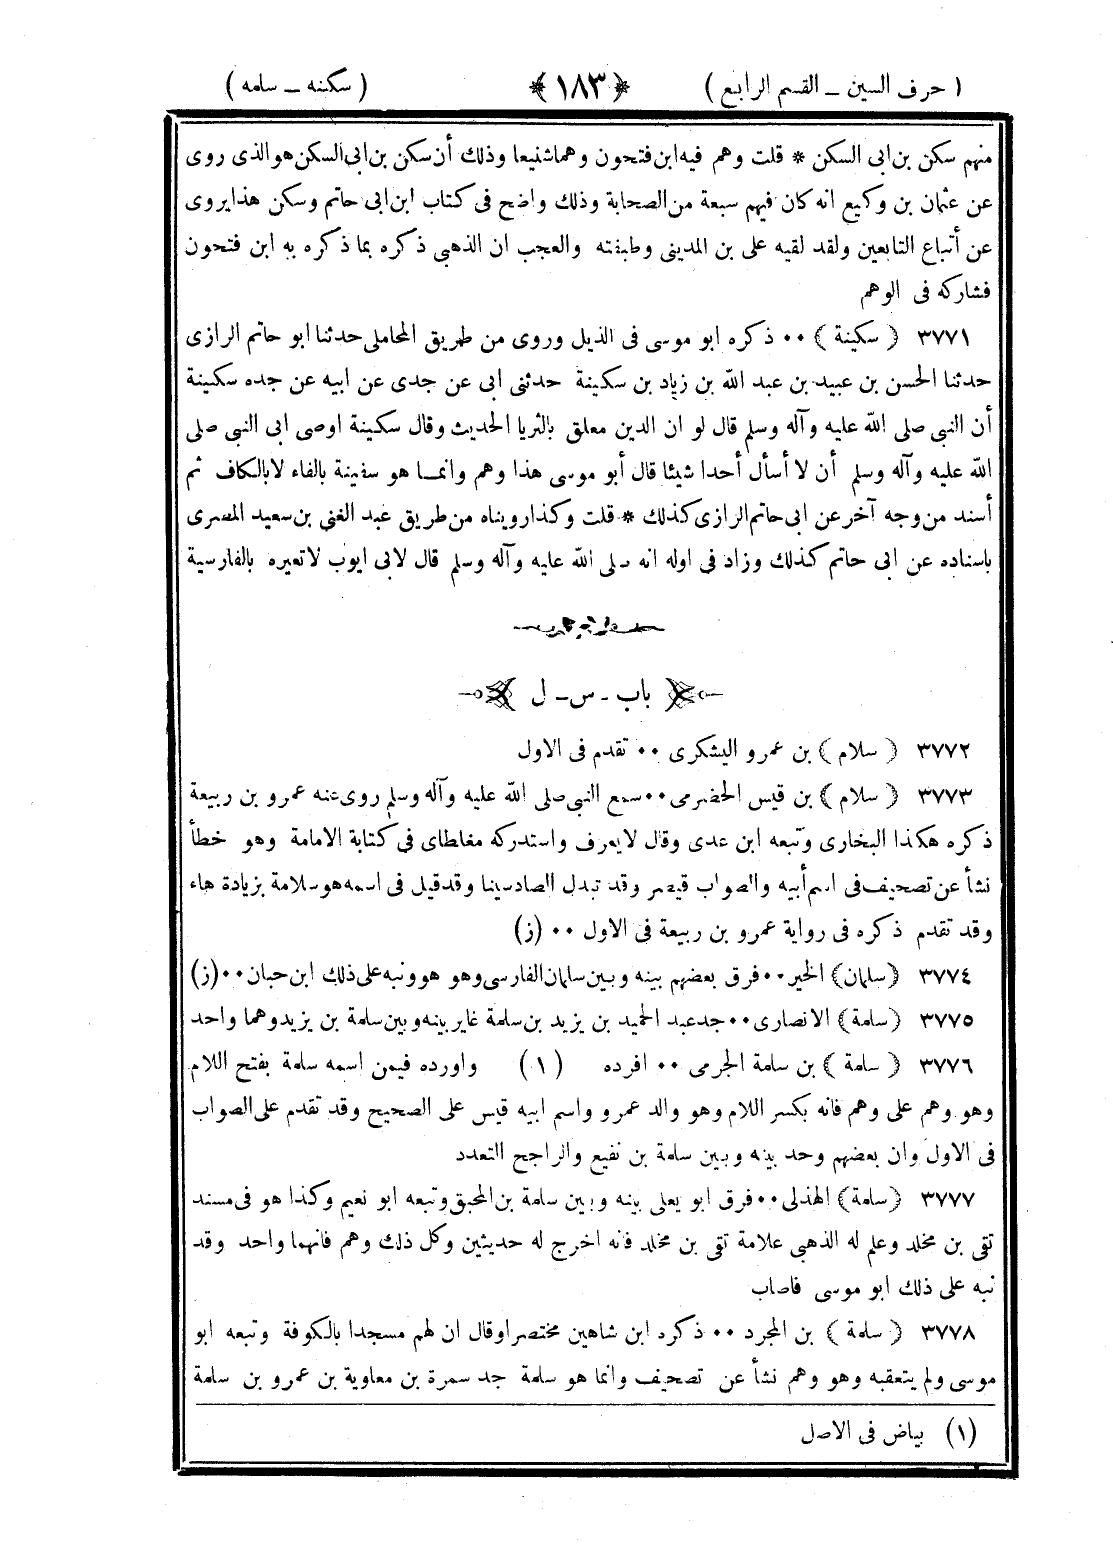 ( حرف السين ــ القسم الرابع ) ﴿ ١٨٣ ﴾ ( سكنه ــ سلمه )
منهم سكن بن ابى السكن * قلت وهم فيه ابن فتحون وهما شنيعا وذلك أن سكن بن ابى السكن هو الذى روى
عن عثمان بن وكيع انه كان فيهم سبعة من الصحابة وذلك واضح فى كتاب ابن ابى حاتم وسكن هذا يروى
عن أتباع التابعين ولقد لقيه على بن المدينى وطبقته والعجب ان الذهبى ذكره بما ذكره به ابن فتحون
فشاركه فى الوهم
٣٧٧١ ( سكينة ) ٠٠ ذكره ابو موسى فى الذيل وروى من طريق المحاملى حدثنا ابو حاتم الرازى
حدثنا الحسن بن عبيد بن عبد الله بن زياد بن سكينة حدثنى ابى عن جدى عن ابيه عن جده سكينة
أن النبى صلى الله عليه وآله وسلم قال لو ان الدين معلق بالثريا الحديث وقال سكينة اوصى ابى النبى صلى
الله عليه وآله وسلم أن لا أسأل أحدا شيئا قال أبو موسى هذا وهم وانما هو سفينة بالفاء لا بالكاف ثم
أسند من وجه آخر عن ابى حاتم الرازى كذلك * قلت وكذا رويناه من طريق عبد الغنى بن سعيد المصرى
باسناده عن ابى حاتم كذلك وزاد فى اوله انه صلى الله عليه وآله وسلم قال لابى ايوب لا تعيره بالفارسية
باب ـ س ـ ل
٣٧٧٢ ( سلام ) بن عمرو اليشكرى ٠٠ تقدم فى الاول
٣٧٧٣ ( سلام ) بن قيس الحضرمى ٠٠ سمع النبى صلى الله عليه وآله وسلم روى عنه عمرو بن ربيعة
ذكره هكذا البخارى وتبعه ابن عدى وقال لا يعرف واستدركه مغلطاى فى كتابة الامامة وهو خطأ
نشأ عن تصحيف فى اسم أبيه والصواب قيصر وقد تبدل الصاد سينا وقد قيل فى اسمه هو سلامة بزيادة هاء
وقد تقدم ذكره فى رواية عمرو بن ربيعة فى الاول ٠٠ (ز)
٣٧٧٤ (سلمان) الخير ٠٠ فرق بعضهم بينه وبين سلمان الفارسى وهو هو ونبه على ذلك ابن حبان ٠٠ (ز)
٣٧٧٥ (سلمة) الانصارى ٠٠ جد عبد الحميد بن يزيد بن سلمة غاير بينه وبين سلمة بن يزيد وهما واحد
٣٧٧٦ ( سلمة ) بن سلمة الجرمى ٠٠ افرده (١) واورده فيمن اسمه سلمة بفتح اللام
وهو وهم على وهم فانه بكسر اللام وهو والد عمرو واسم ابيه قيس على الصحيح وقد تقدم على الصواب
فى الاول وان بعضهم وحد بينه وبين سلمة بن نفيع والراجح التعدد
٣٧٧٧ (سلمة) الهذلى ٠٠ فرق ابو يعلى بينه وبين سلمة بن المحبق وتبعه ابو نعيم وكذا هو فى مسند
تقى بن مخلد وعلم له الذهبى علامة تقى بن مخلد فانه اخرج له حديثين وكل ذلك وهم فانهما واحد وقد
نبه على ذلك ابو موسى فاصاب
٣٧٧٨ ( سلمة ) بن المجرد ٠٠ ذكره ابن شاهين مختصرا وقال ان لهم مسجدا بالكوفة وتبعه ابو
موسى ولم يتعقبه وهو وهم نشأ عن تصحيف وانما هو سلمة جد سمرة بن معاوية بن عمرو بن سلمة
(١) بياض فى الاصل